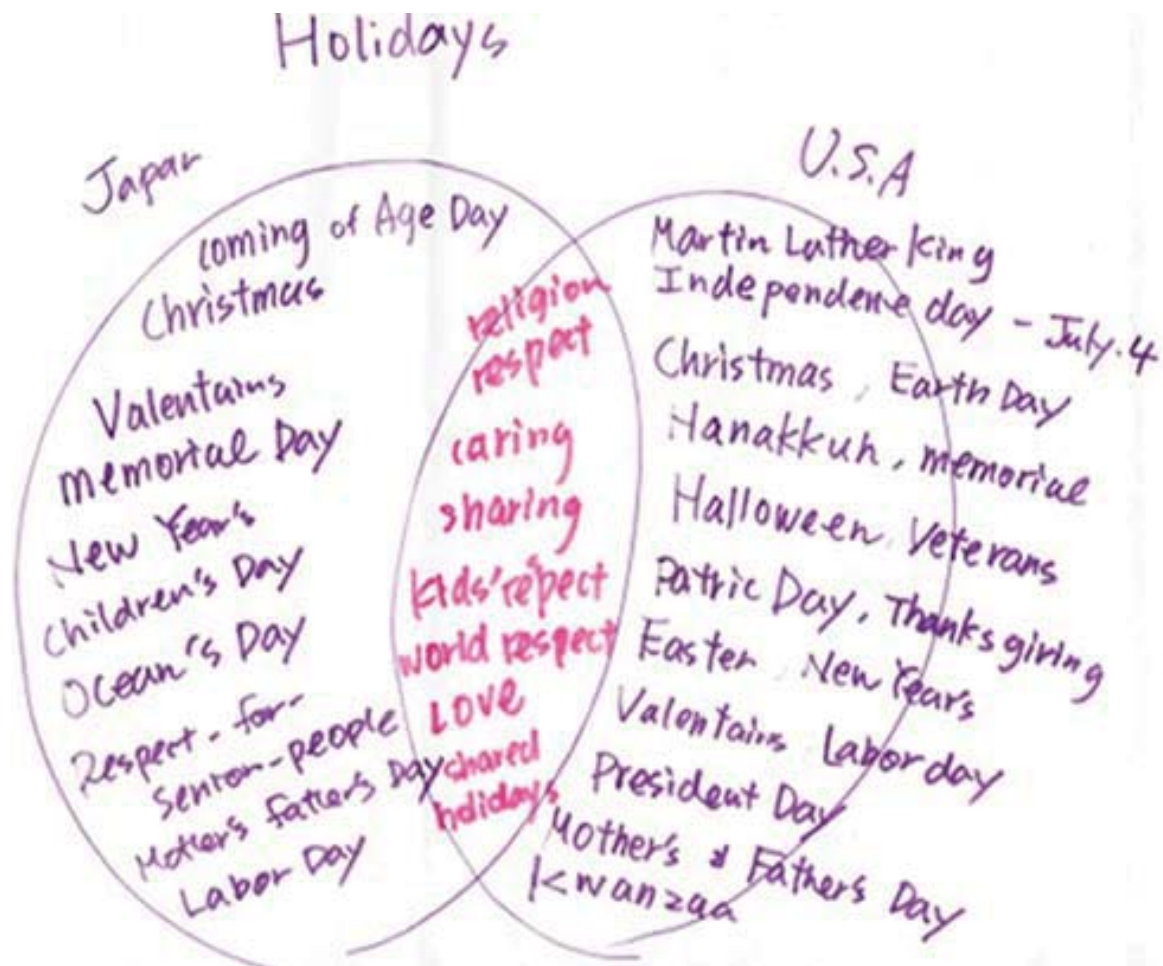 Holidays
Japan
coming of Age Day
Christmas
Valentains
memorial Day
New Year's
Children's Day
Ocean's Day
Respect-for-
senior-people
Mother's father's Day
Labor Day
religion
respect
caring
sharing
kids' re'pect
world respect
Love
shared
holidays
U.S.A
Martin Luther King
Independene day - July.4
Christmas, Earth Day
Hanakkuh, memorial
Halloween, Veterans
Patric Day, Thanksgiving
Easter, New Years
Valentains, Labor day
President Day
Mother's & Fathers Day
Kwanzaa